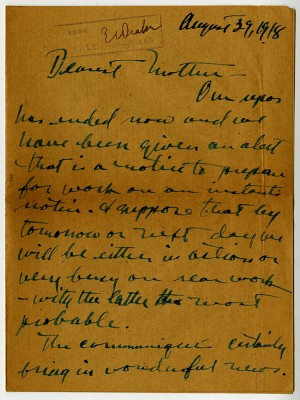 August 29, 1918
Dearest Mother –
Our repos
has ended now and we
have been given an alert
that is a notice to prepare
for work on an instants
notice. I suppose that by
tomorrow or next day we
will be either in action or
very busy on rear work
– with the latter the most
probable.
The communique certainly
bring in wonderful news.